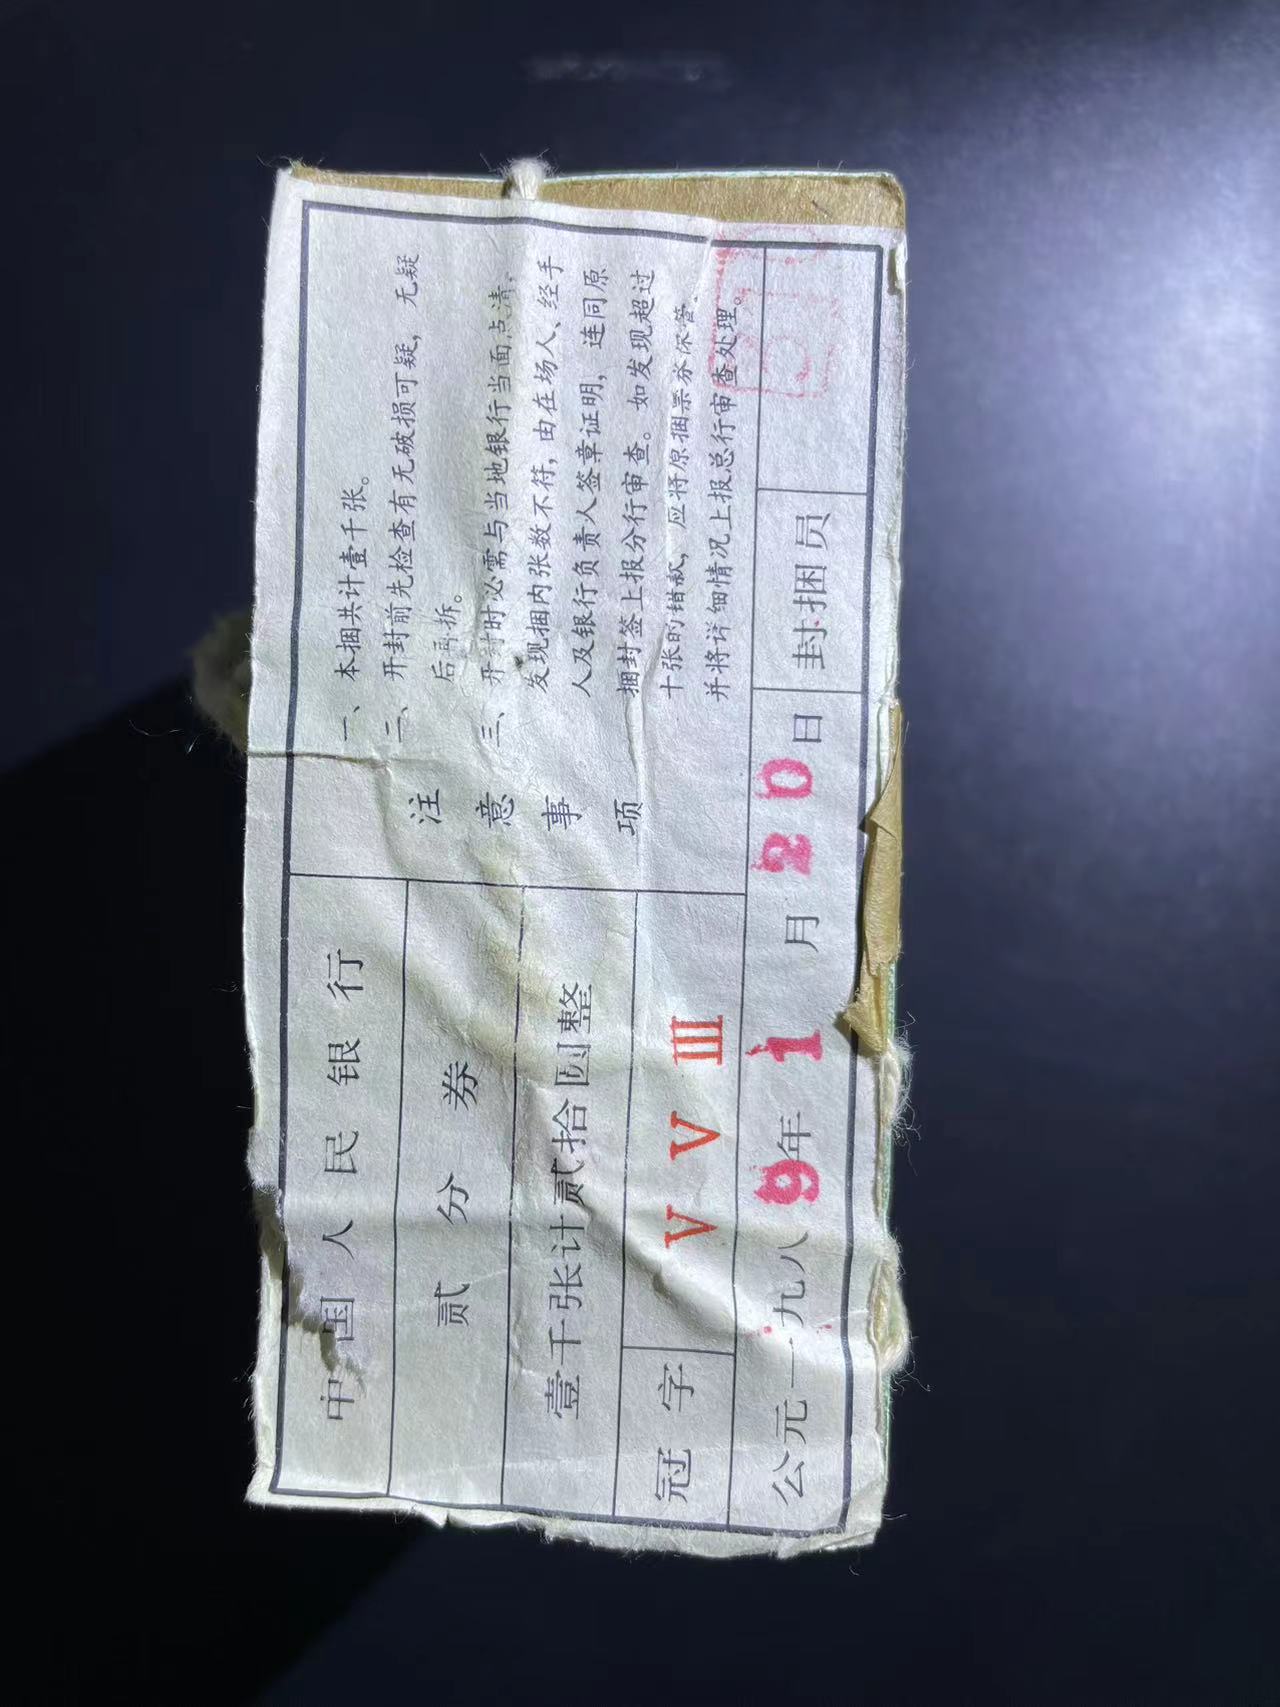 中国人民银行
贰分券
壹千张计贰拾圆整
冠字 V V Ⅲ
注意事项
一、本捆共计壹千张。
二、开封前先检查有无破损可疑，无疑
后再拆。
三、开封时必需与当地银行当面点清，
发现捆内张数不符，由在场人、经手
人及银行负责人签章证明，连同原
捆封签上报分行审查。如发现超过
十张的错款，应将原捆票券保管，
并将详细情况上报总行审查处理。
公元一九八9年1月20日 封捆员